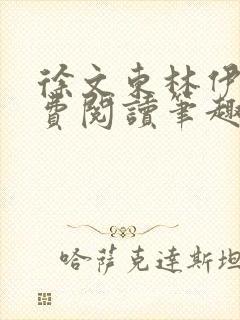 徐文東林伊
費閱讀筆趣
哈薩克達斯坦